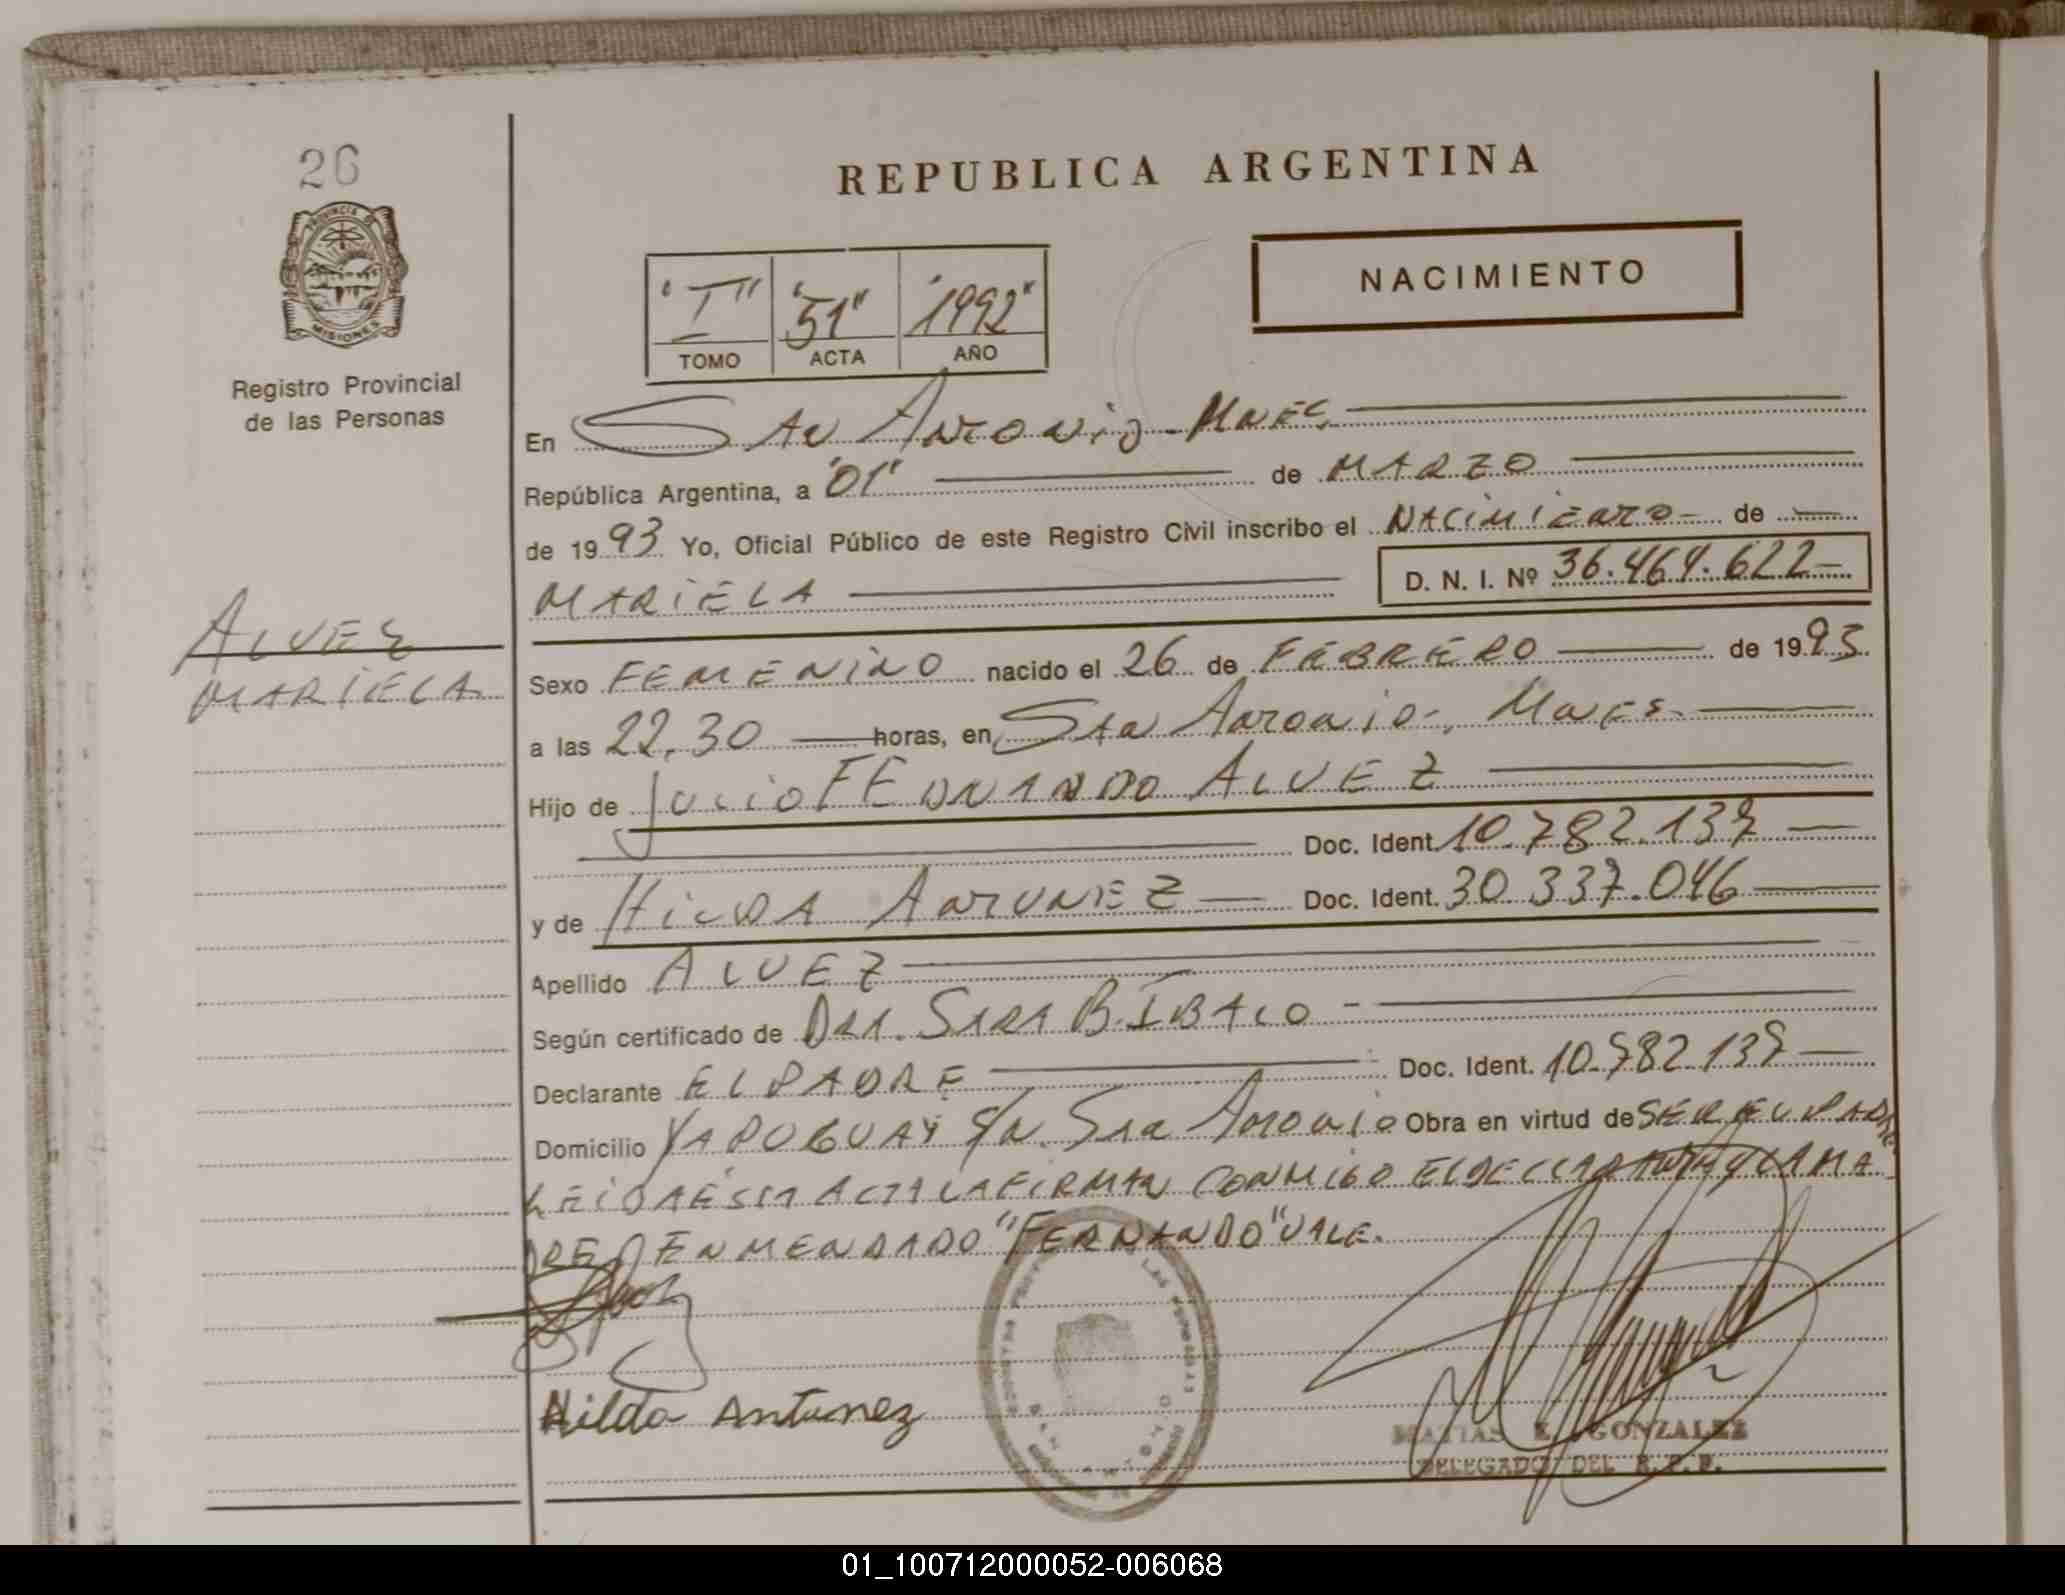 26
REPUBLICA ARGENTINA
PROVINCIA DE
MISIONES
Registro Provincial
de las Personas
NACIMIENTO
"I" "51" "1992"
TOMO ACTA AÑO
En San Antonio - Mnes
República Argentina, a "01" de MARZO
de 1993 Yo, Oficial Público de este Registro Civil inscribo el NACIMIENTO - de
MARIELA D. N. I. Nº 36.464.622
ALVEZ
MARIELA
Sexo FEMENINO nacido el 26 de FEBRERO de 1993
a las 22.30 horas, en San Antonio-, Mnes
Hijo de Julio FERNANDO ALVEZ
Doc. Ident. 10.782.137
y de HILDA ANTUNEZ Doc. Ident. 30.337.046
Apellido ALVEZ
Según certificado de DRA. SARA B.
Declarante EL PADRE Doc. Ident. 10.782.137
Domicilio YAPUGUAY S/N. San Antonio Obra en virtud de SER EL PADRE
LEIDA ESTA ACTA LA FIRMAN CONMIGO EL DECLARANTE Y LA MA
DRE ENMENDADO "FERNANDO" VALE.
Hilda Antunez
MATIAS E. GONZALEZ
DELEGADO DEL R.P.P.
01_100712000052-006068